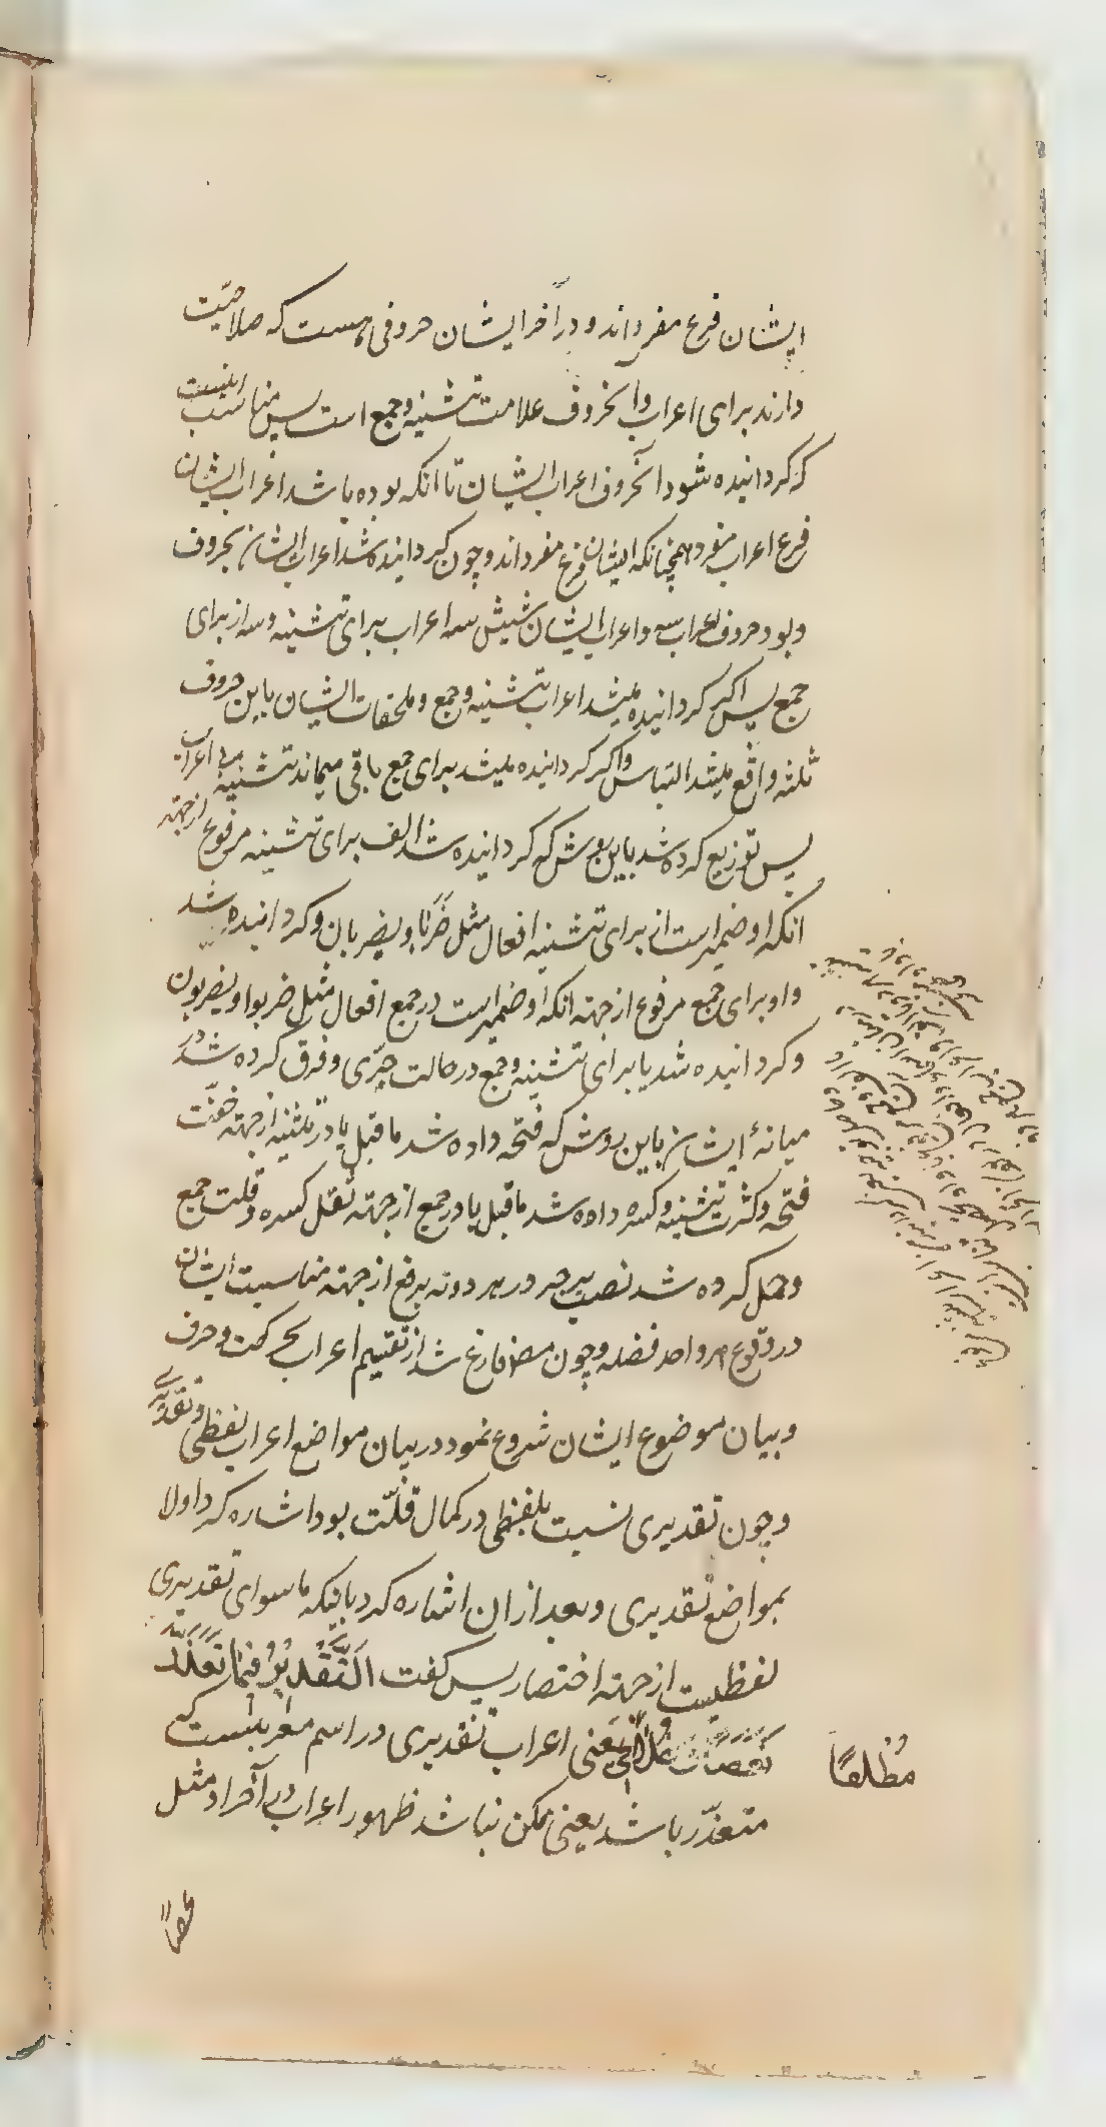 ایشان فرع مفرداند و در آخر ایشان حروفی هست که صلاحیت
دارند برای اعراب و آنحروف علامت تثنیه و جمع است پس مناسب اینست
که کردانیده شود آنحروف اعراب ایشان تا آنکه بوده باشد اعراب ایشان
فرع اعراب مفرد همچنانکه ایشان فرع مفرداند و چون کردانیده شد اعراب ایشان بحروف
و بود حروف اعراب سه و اعراب ایشان شش سه اعراب برای تثنیه و سه از برای
جمع پس اکر کردانیده میشد اعراب تثنیه و جمع و ملحقات ایشان باین حروف
ثلثه واقع میشد التباس و اکر کردانیده میشد برای جمع باقی میماند تثنیه بی اعراب
پس توزیع کرده شد باین روش که کردانیده شد الف برای تثنیه مرفوع از جهته
انکه او ضمیر است از برای تثنیه افعال مثل ضربا و یضربان و کردانیده شد
واو برای جمع مرفوع از جهته انکه او ضمیر است در جمع افعال مثل ضربوا و یضربون
و کردانیده شد یا برای تثنیه و جمع در حالت جری و فرق کرده شد در
میانهٔ ایشان باین روش که فتحه داده شد ما قبل یا در تثنیه از جهته خفت
فتحه و کثرت تثنیه و کسره داده شد ما قبل یا در جمع از جهته ثقل کسره و قلت جمع
و حمل کرده شد نصب بر جر در هر دو نه برفع از جهته مناسبت ایشان
در وقوع هر واحد فضله و چون مصنف فارغ شد از تقسیم اعراب بحرکت و حرف
و بیان موضوع ایشان شروع نمود در بیان مواضع اعراب لفظی و تقدیری
و چون تقدیری نسبت بلفظی در کمال قلت بود اشاره کرد اولا
بمواضع تقدیری و بعد از ان اشاره کرد باینکه ما سوای تقدیری
لفظیست از جهته اختصار پس کفت التَّقْدِیْرُ فِیْمَا تَعَذَّرَ
کَعَصًا وَ غُلَامِی یعنی اعراب تقدیری در اسم معربیست که
مُطْلَقًا
متعذر باشد یعنی ممکن نباشد ظهور اعراب در آخر او مثل
عصا